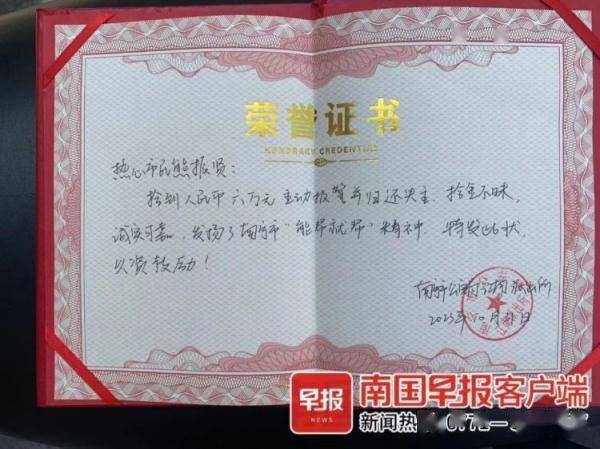 荣誉证书
HONORARY CREDENTIAL
热心市民熊振贤：
捡到人民币六万元主动报警并归还失主，拾金不昧，
诚实可嘉，发扬了南宁市“能帮就帮”精神，特发此状，
以资鼓励！
南宁市公安局
派出所
2023年10月
日
早报
NEWS
南国早报客户端
新闻热